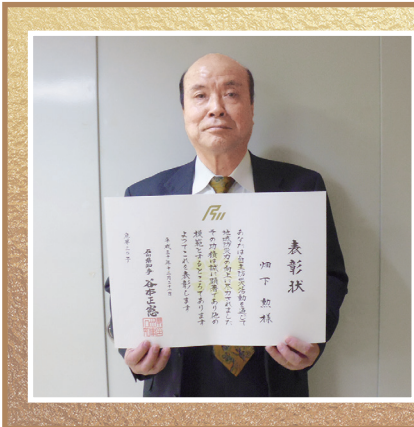 表彰状
畑下 勲 様
あなたは自主防災活動を通じて
地域防災力の向上に尽力されました
その功績は誠に顕著であり他の
模範とするところであります
よってこれを表彰します
石川県知事 谷本正憲